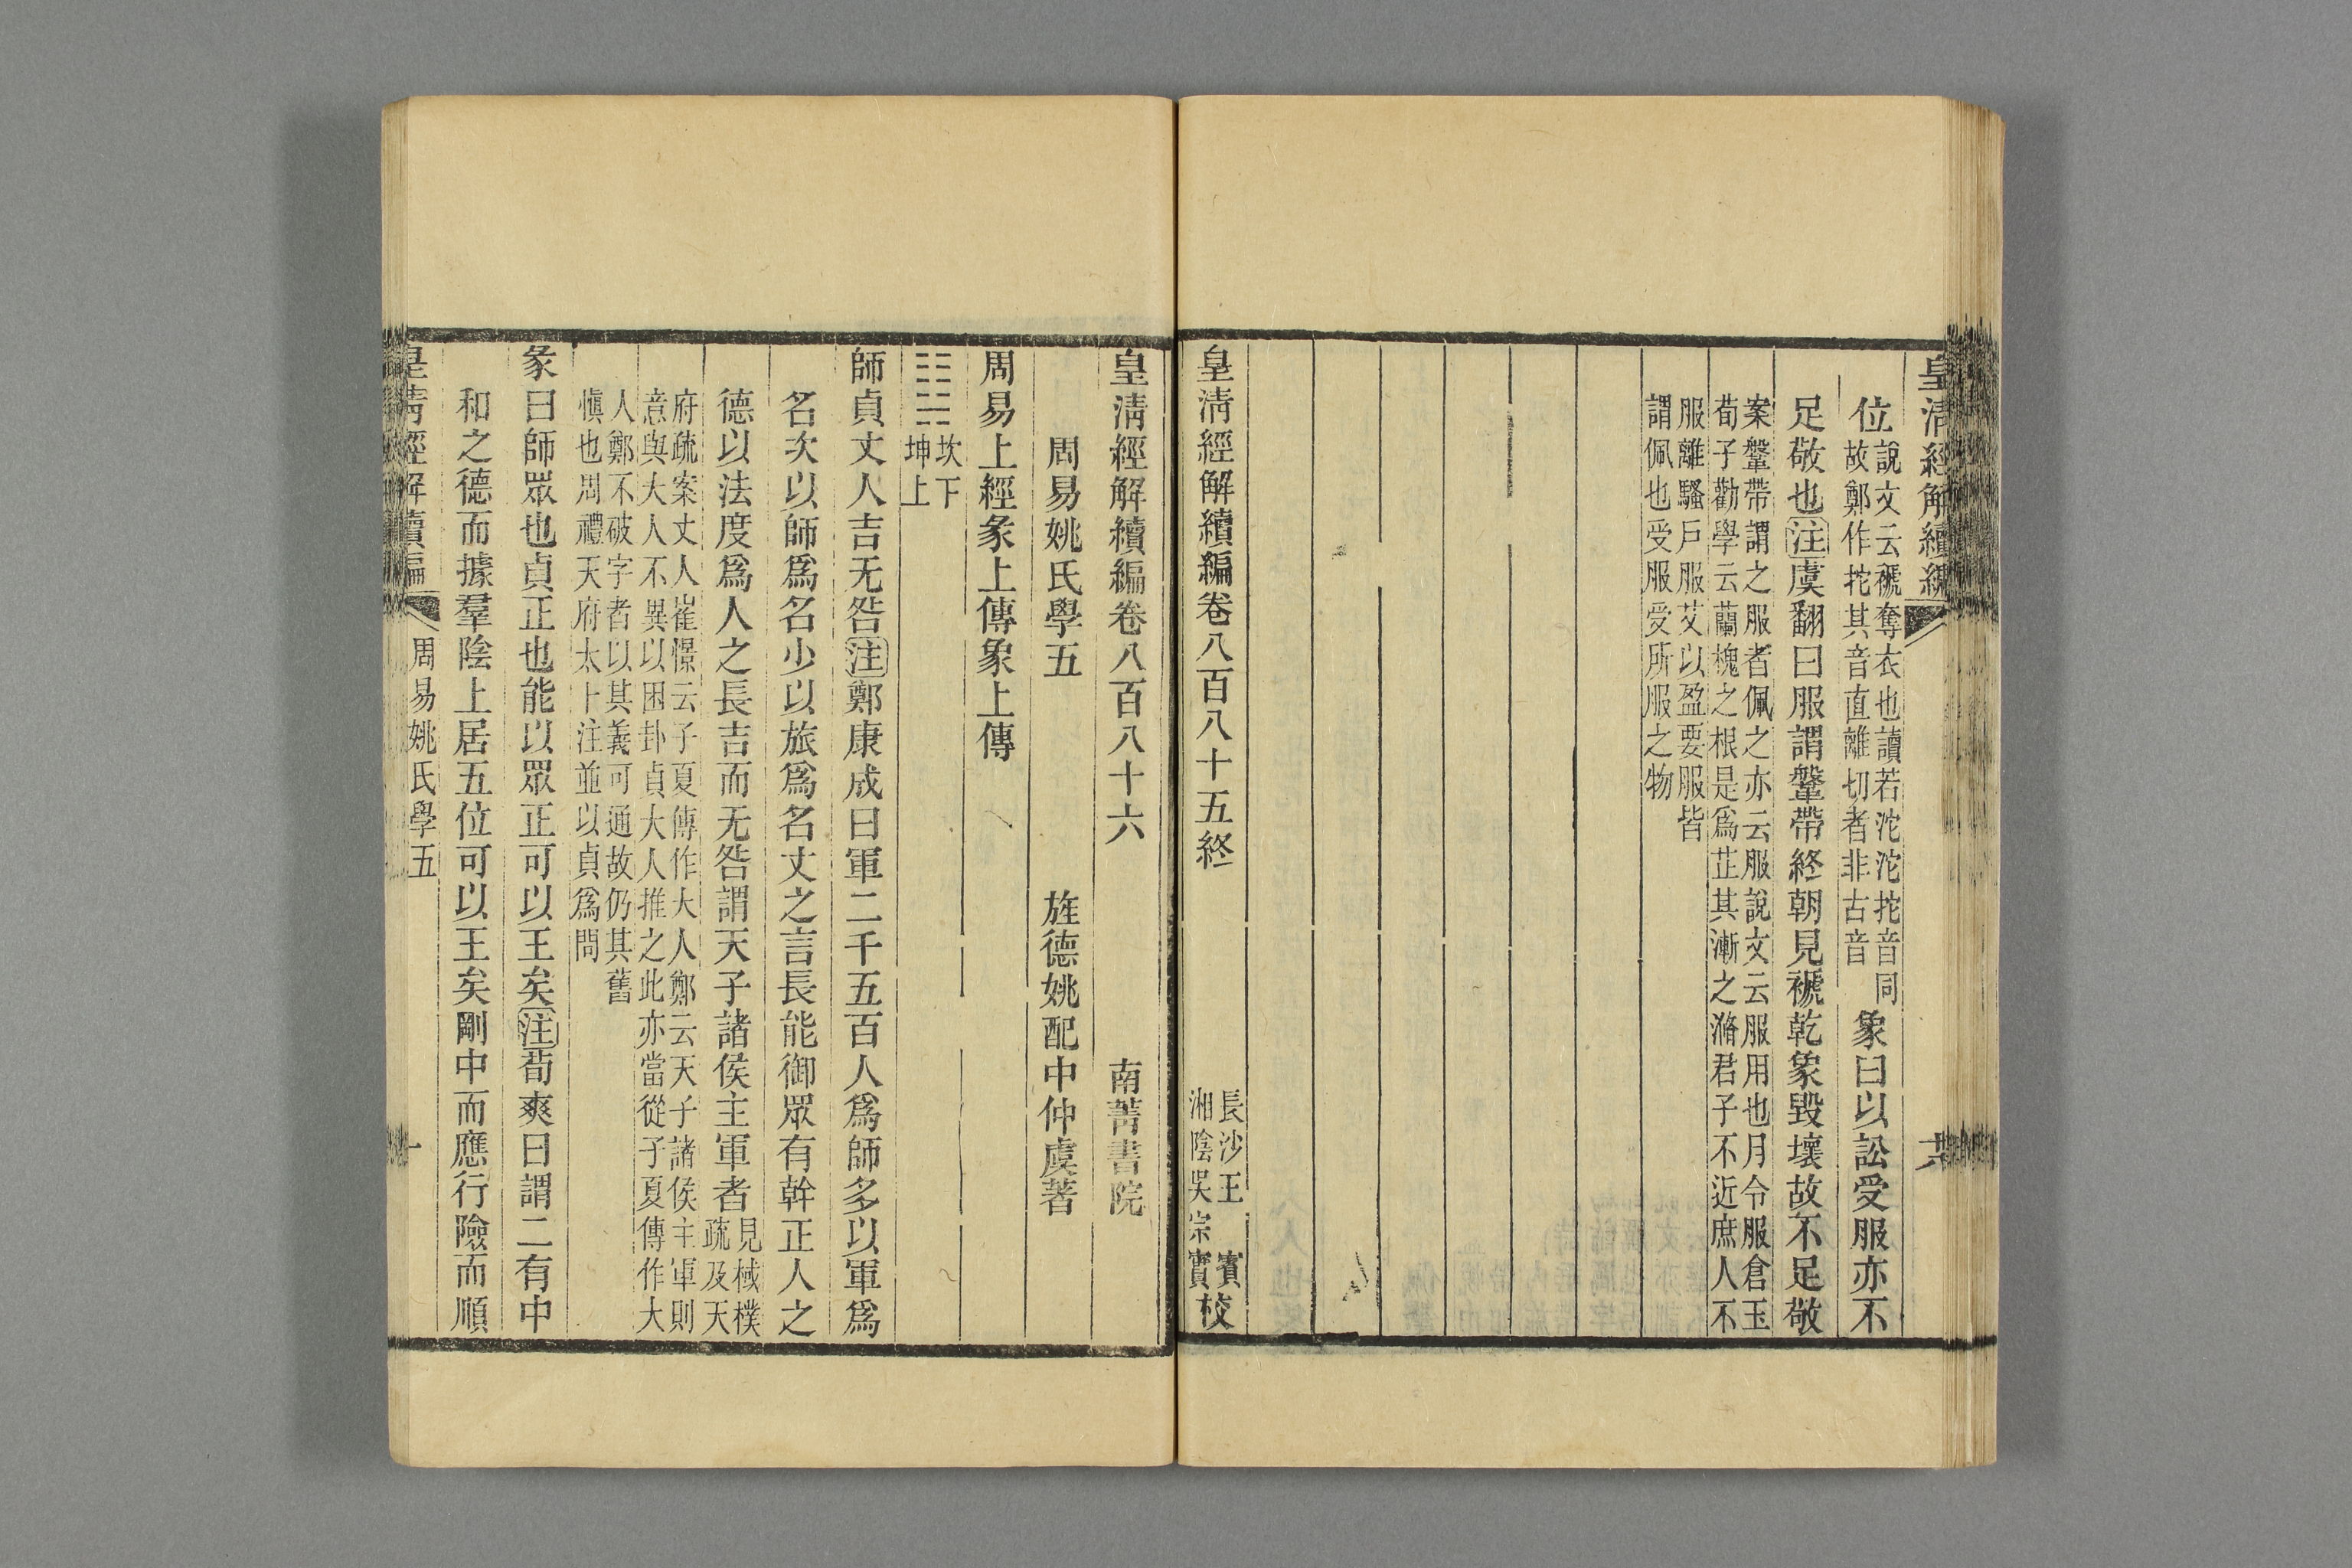 皇清經解續編
六
位說文云褫奪衣也讀若沱沱拕音同
故鄭作拕其音直離切者非古音象曰以訟受服亦不
足敬也注虞翻曰服謂鞶帶終朝見褫乾象毀壞故不足敬
案鞶帶謂之服者佩之亦云服說文云服用也月令服倉玉
荀子勸學云蘭槐之根是爲芷其漸之滫君子不近庶人不
服離騷戶服艾以盈要服皆
謂佩也受服受所服之物
皇清經解續編卷八百八十五終
長沙王賓
湘陰吳宗實校
皇清經解續編卷八百八十六
南菁書院
周易姚氏學五
旌德姚配中仲虞著
周易上經彖上傳象上傳
坎下
坤上
師貞丈人吉无咎注鄭康成曰軍二千五百人爲師多以軍爲
名次以師爲名少以旅爲名丈之言長能御眾有幹正人之
德以法度爲人之長吉而无咎謂天子諸侯主軍者見棫樸
疏及天
府疏案丈人崔憬云子夏傳作大人鄭云天子諸侯主軍則
意與大人不異以困卦貞大人推之此亦當從子夏傳作大
人鄭不破字者以其義可通故仍其舊
愼也周禮天府太卜注並以貞爲問
彖曰師眾也貞正也能以眾正可以王矣注荀爽曰謂二有中
和之德而據羣陰上居五位可以王矣剛中而應行險而順
皇清經解續編
周易姚氏學五
一